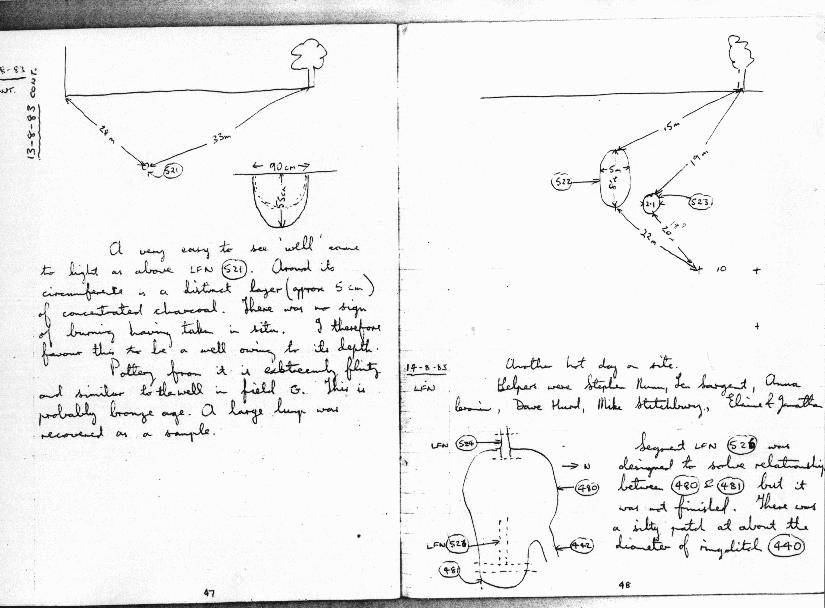 8-83
CONT.
13-8-83 CONT.
28m
33m
521
90cm
55cm
A very easy to see 'well' came
to light as above LFN 521. Around its
circumference is a distinct layer (approx 5 cm)
of concentrated charcoal. There was no sign
of burning having taken in situ. I therefore
favour this to be a well owing to its depth.
Pottery from it is extreemly flinty
and similar to the well in field G. This is
probably bronze age. A large lump was
recovered as a sample.
47
15m
19m
522
5m
2.1
523
22m
20m
10
14-8-83
LFN
Another hot day on site.
Helpers were Stephen Len Sargent, Anna
Dave Hurd, Mike Stitchbury, Elaine & Jonathan
LFN 524
N
480
LFN
442
481
Segment LFN was
designed to solve relationship
between 480 & 481 but it
was not finished. There was
a silty patch at about the
diameter of ringditch 440
48